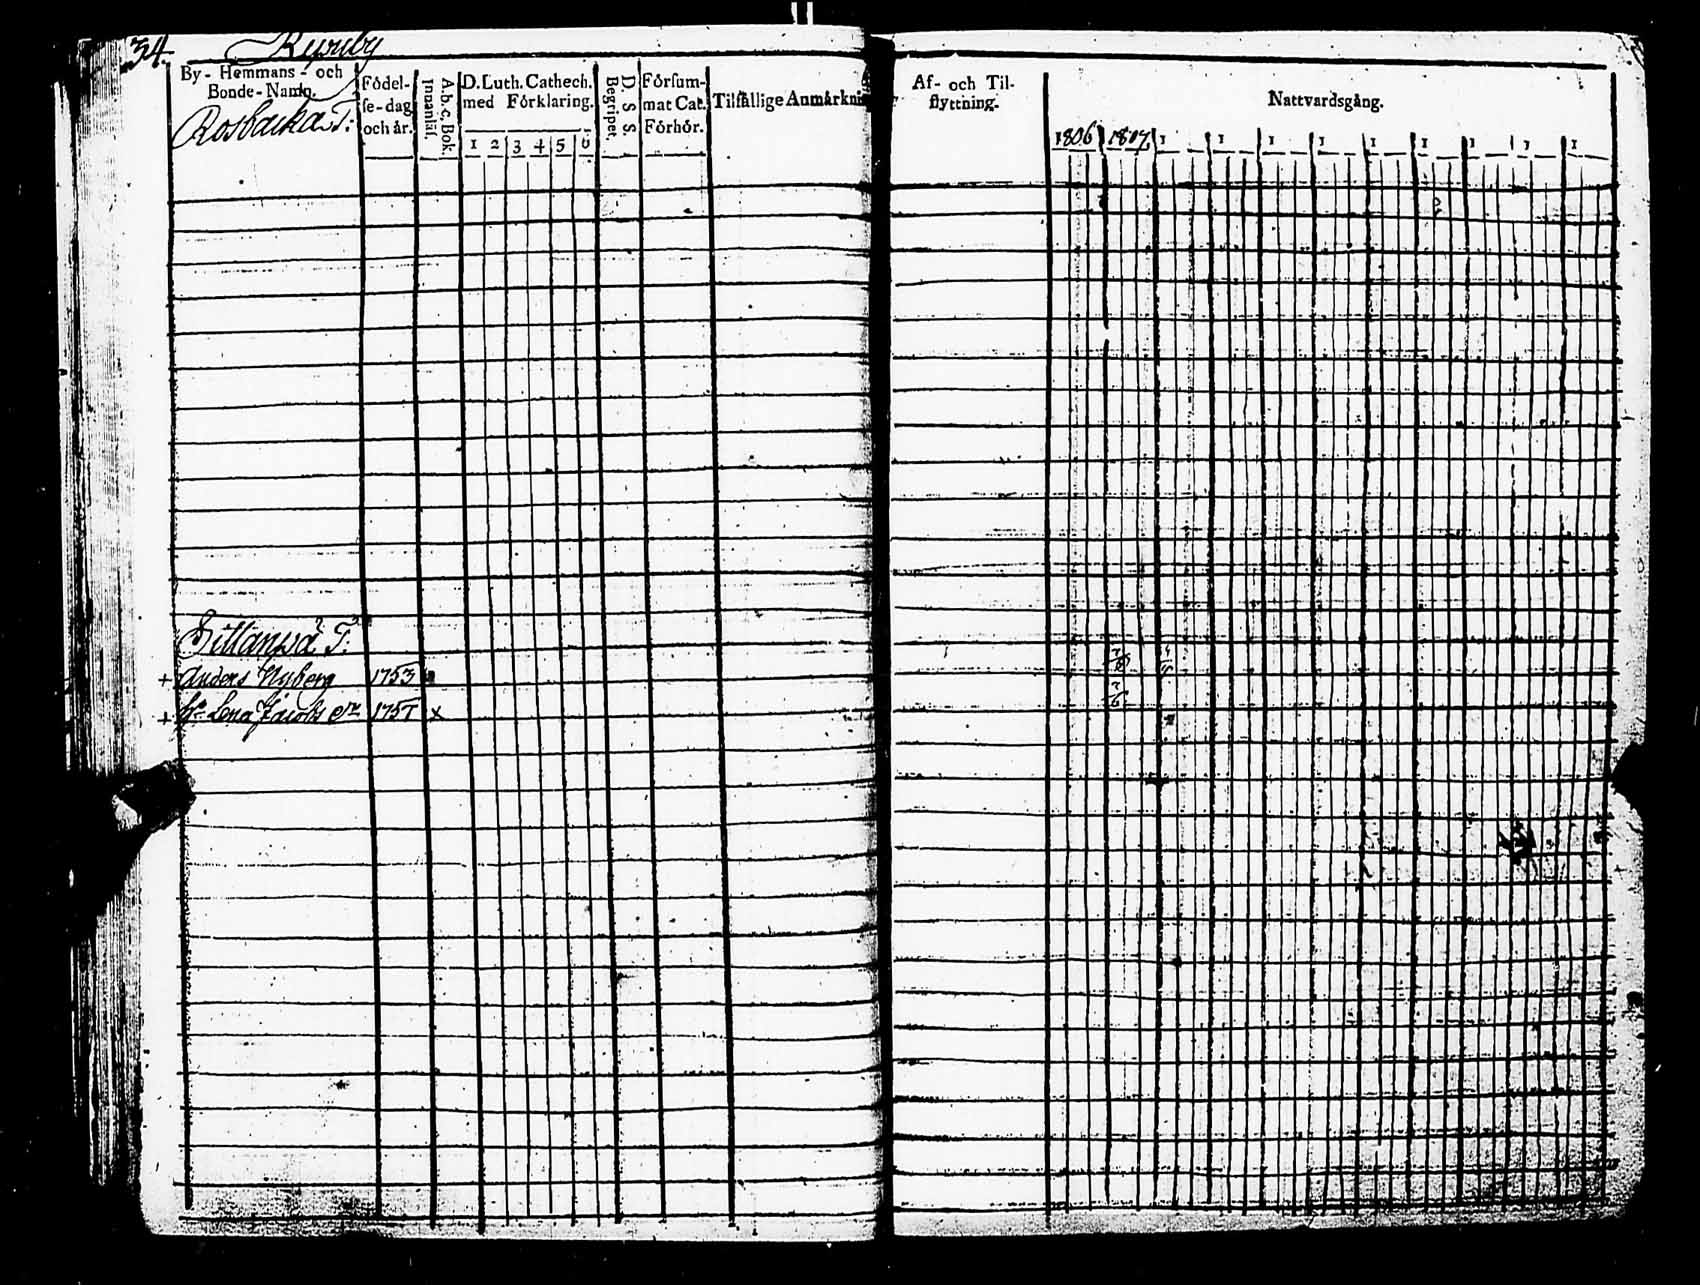 34.
By- Hemmans- och Bonde-Namn.
Födel-se-dag och år.
A.b.c. Bok. Innanläs.
D. Luth. Cathech. med Förklaring.
1 2 3 4 5 6
D. S. S. Begripet.
Försum-mat Cat. Förhör.
Tilfällige Anmärkn
Af- och Til-flyttning.
Nattvardsgång.
1806 1807 1 1 1 1 1 1 1 1 1
Rosbacka T:
Anders Nyberg 1753
Lena Jacobs 1757 x